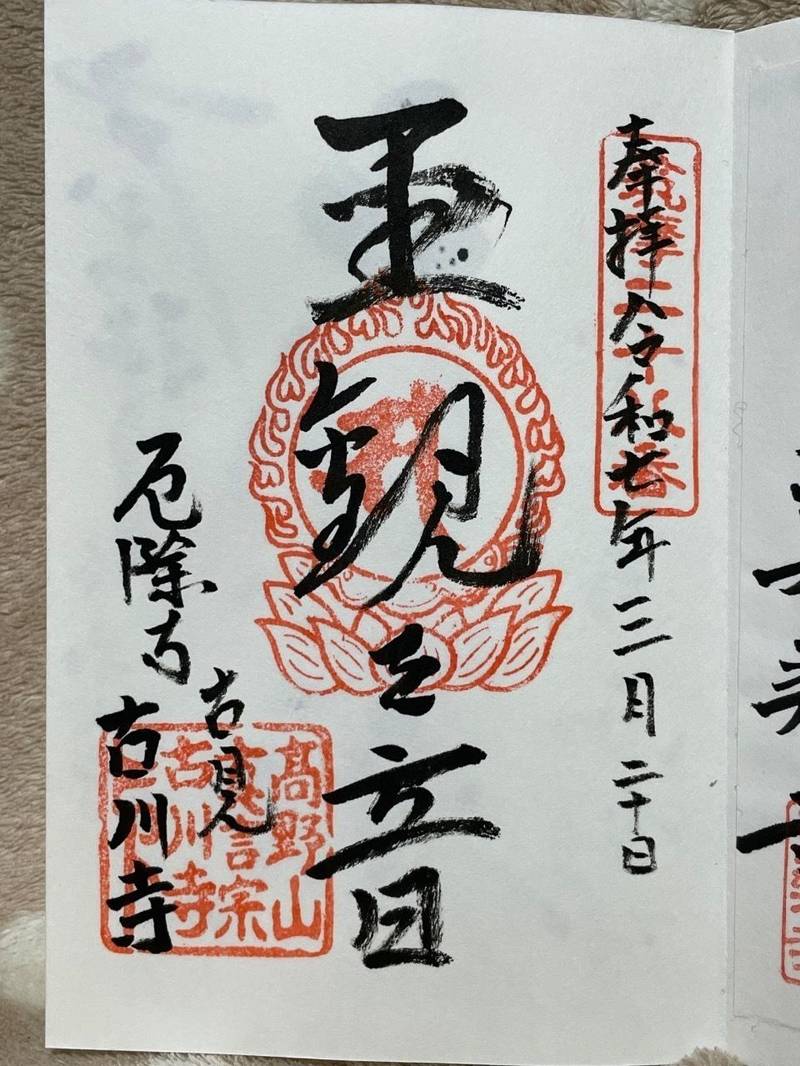 奉拝令和七年三月二十日
観世音
古見
厄除寺
古川寺
髙野山
真言宗
古川寺